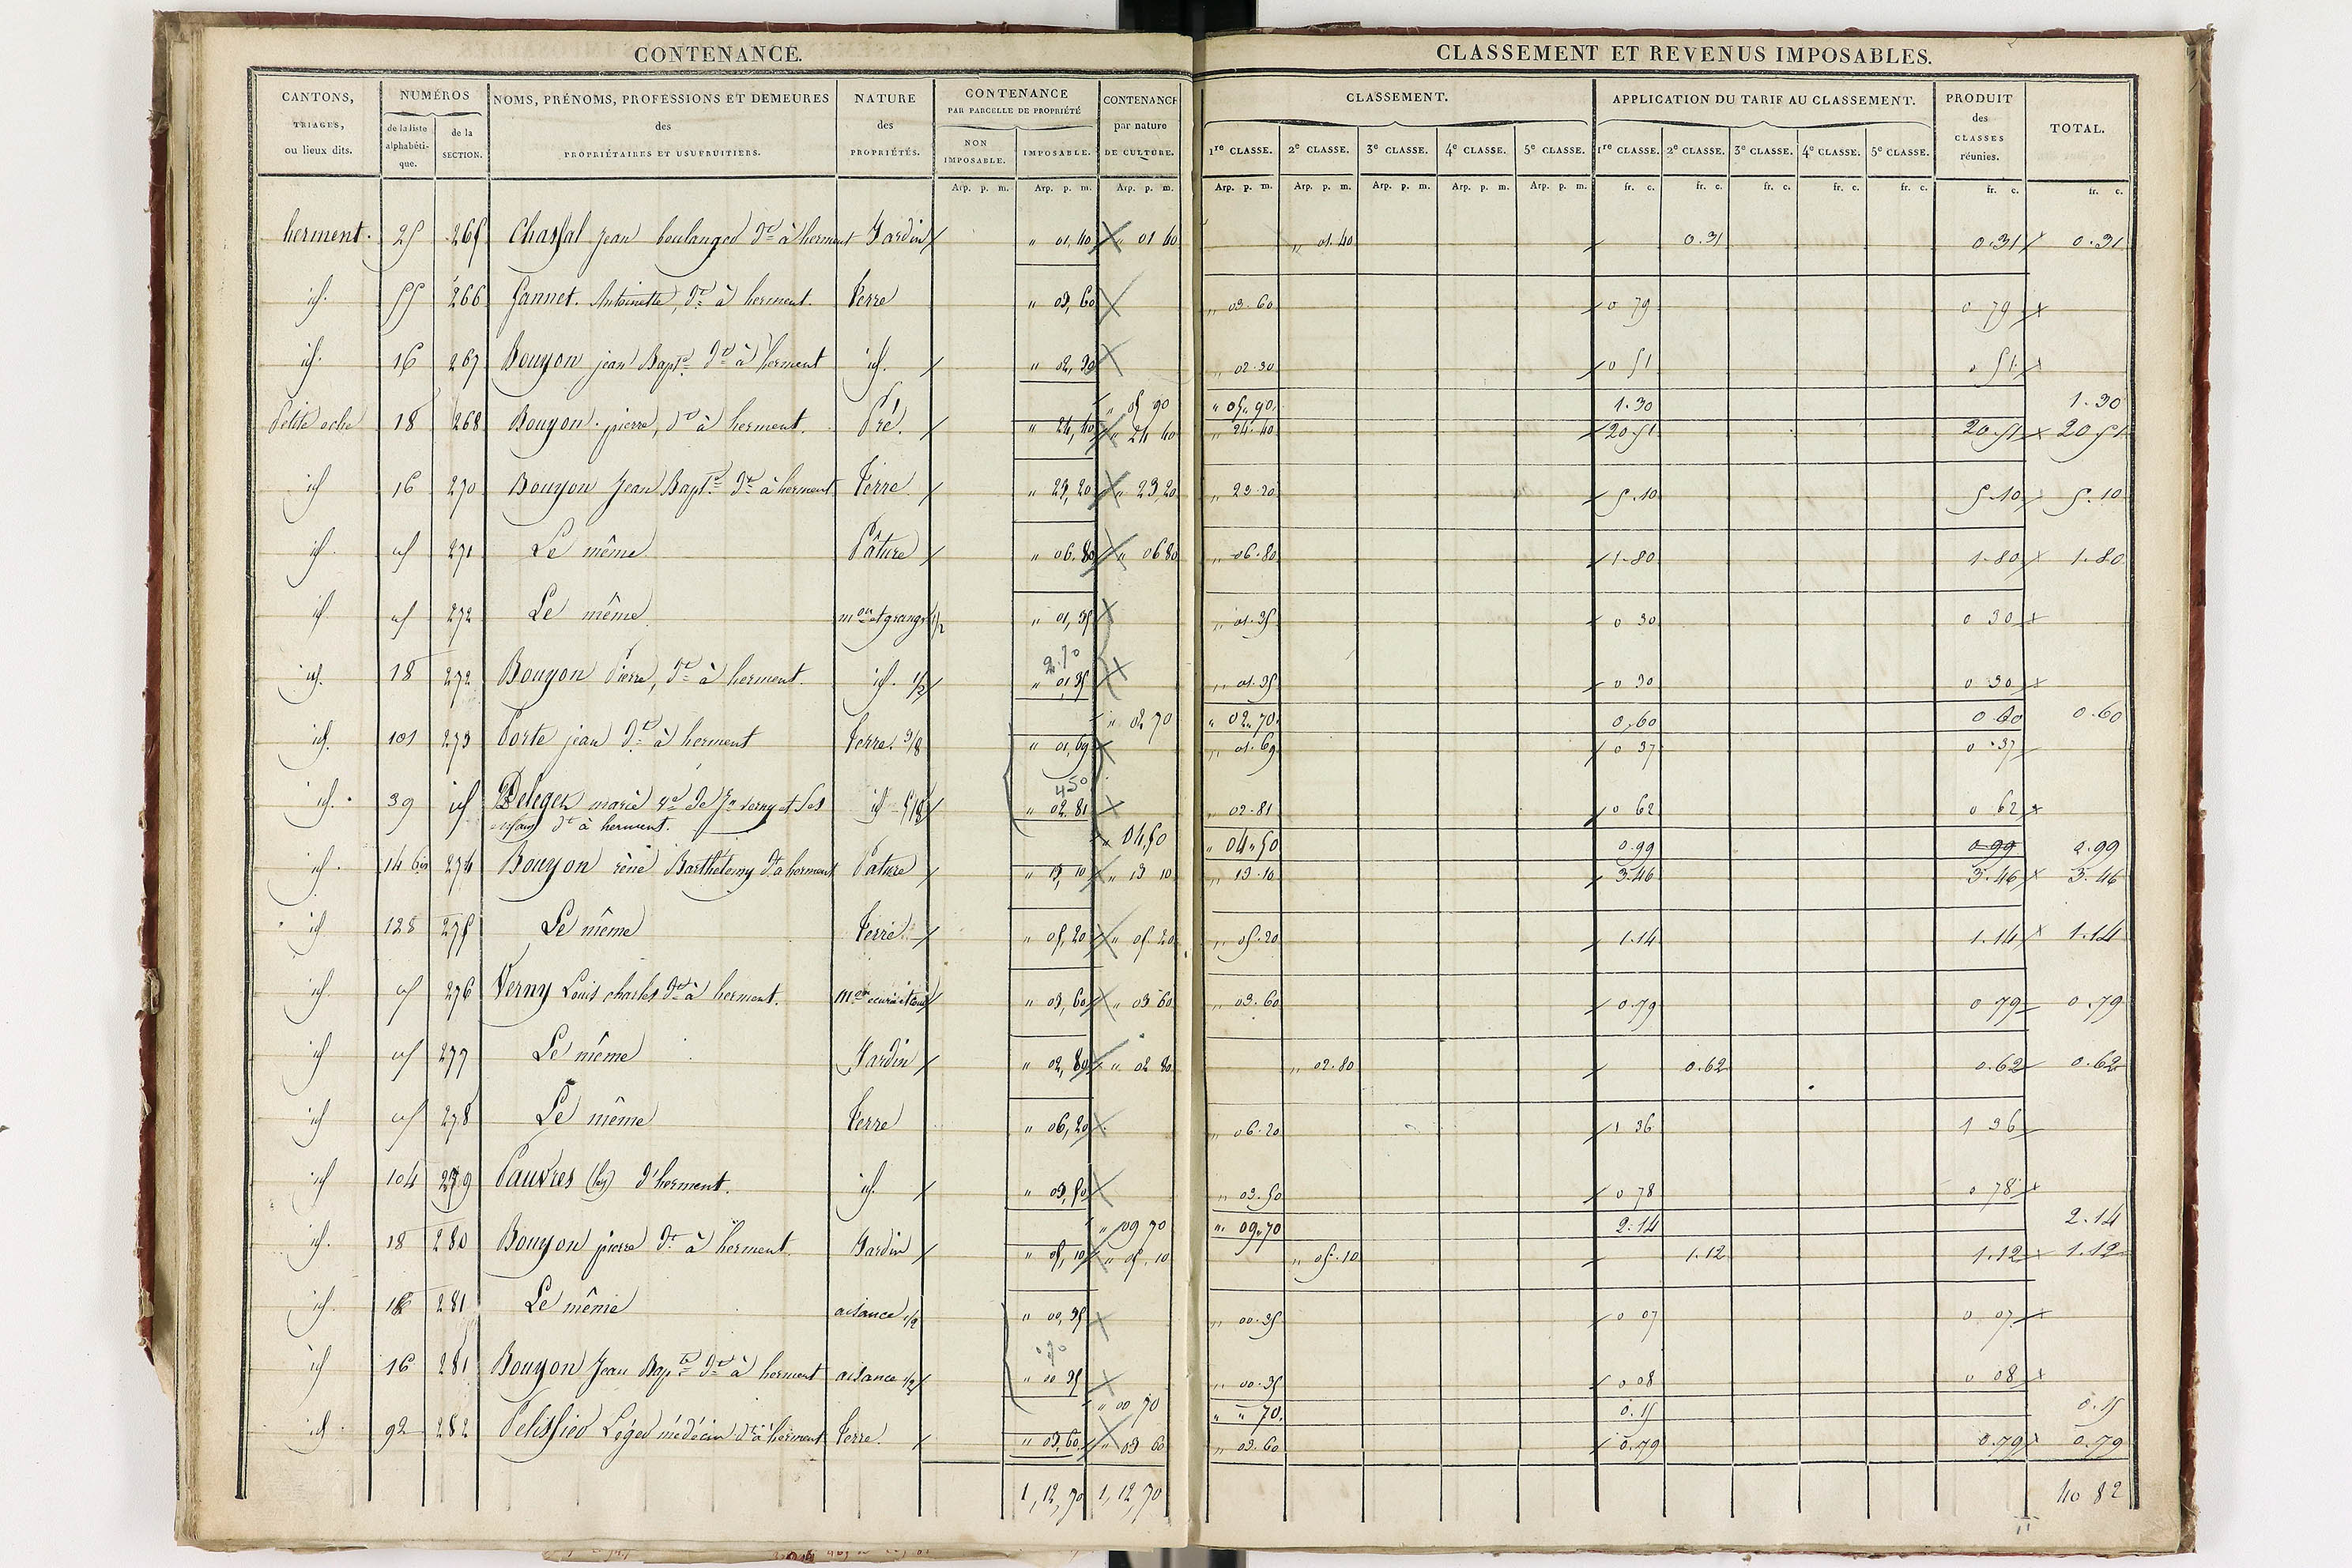 CONTENANCE.
CLASSEMENT ET REVENUS IMPOSABLES.
CANTONS, TRIAGES, ou lieux dits. NUMÉROS de la liste alphabétique. de la SECTION. NOMS, PRÉNOMS, PROFESSIONS ET DEMEURES des PROPRIÉTAIRES ET USUFRUITIERS. NATURE des PROPRIÉTÉS. CONTENANCE PAR PARCELLE DE PROPRIÉTÉ NON IMPOSABLE. IMPOSABLE. CONTENANCE par nature DE CULTURE.
CLASSEMENT. 1re CLASSE. 2e CLASSE. 3e CLASSE. 4e CLASSE. 5e CLASSE. APPLICATION DU TARIF AU CLASSEMENT. 1re CLASSE. 2e CLASSE. 3e CLASSE. 4e CLASSE. 5e CLASSE. PRODUIT des CLASSES réunies. TOTAL.
Arp. p. m. Arp. p. m. Arp. p. m. Arp. p. m. Arp. p. m. Arp. p. m. Arp. p. m. Arp. p. m. fr. c. fr. c. fr. c. fr. c. fr. c. fr. c. fr. c.
herment. 25 265 Chassal Jean boulanger dt à herment Jardin " 01,40 " 01 40 " 01.40 0.31 0.31 0.31
id. 55 266 Gannet. Antoinette, dt à herment. terre " 03,60 " 03.60 0 79 0 79
id. 16 267 Bouyon jean Bapte dt à herment id. " 02,30 " 02.30 0 51 0 51
" 05 90 " 05.90 1.30 1.30
Petite oche 18 268 Bouyon pierre, dt à herment. Pré. " 24,40 " 24 40 " 24.40 20.51 20.51 20 51
id 16 270 Bouyon Jean Bapte dt à herment terre " 23,20 " 23,20 " 23.20 5.10 5.10 5.10
id. id 271 Le même Pâture " 06.80 " 06 80 " 06.80 1.80 1.80 1.80
id id 272 Le même mon et grange 1/2 " 01,35 " 01.35 0 30 0 30
id. 18 272 Bouyon Pierre, dt à herment. id. 1/2 2.70 " 01,35 " 01.35 0 30 0 30
" 02 70 " 02.70 0,60 0 60 0.60
id. 101 273 Porte jean dt à herment terre. 3/8 " 01,69 " 01.69 0 37 0 37
id. 39 id Deleger marie ve de Jn Verny et ses id 5/8 450 " 02.81 " 02.81 0 62 0 62
enfans dt à herment.
" 04.50 " 04.50 0.99 0.99 0.99
id. 14 bis 274 Bouyon réné Barthélemy dt à herment Pature " 13,10 " 13 10 " 13.10 3.46 3.46 3.46
id 128 275 Le même terre " 05,20 " 05.20 " 05.20 1.14 1.14 1.14
id. id 276 Verny Louis charles dt à herment. mon écurie et " 03,60 " 03 60 " 03.60 0.79 0.79 0.79
id id 277 Le même Jardin " 02,80 " 02 80 " 02.80 0.62 0.62 0.62
id id 278 Le même terre " 06,20 " 06.20 1 36 1 36
id 104 279 Pauvres (les) d'herment. id. " 03,50 " 03.50 0 78 0 78
" 09 70 " 09.70 2.14 2.14
id. 18 280 Bouyon pierre dt à herment. Jardin " 05,10 " 05.10 " 05.10 1.12 1.12 1.12
id. 18 281 Le même aisance 1/2 " 00,35 " 00.35 0 07 0 07
id 16 281 Bouyon Jean Bapte dt à herment aisance 1/2 70 " 00 35 " 00.35 0 08 0 08
" 00 70 " " 70. 0.15 0.15
id 92 282 Pelissier Léger médécin dt à herment terre. " 03,60 " 03 60 " 03.60 0.79 0.79 0.79
1,12,70 1,12,70 40 82